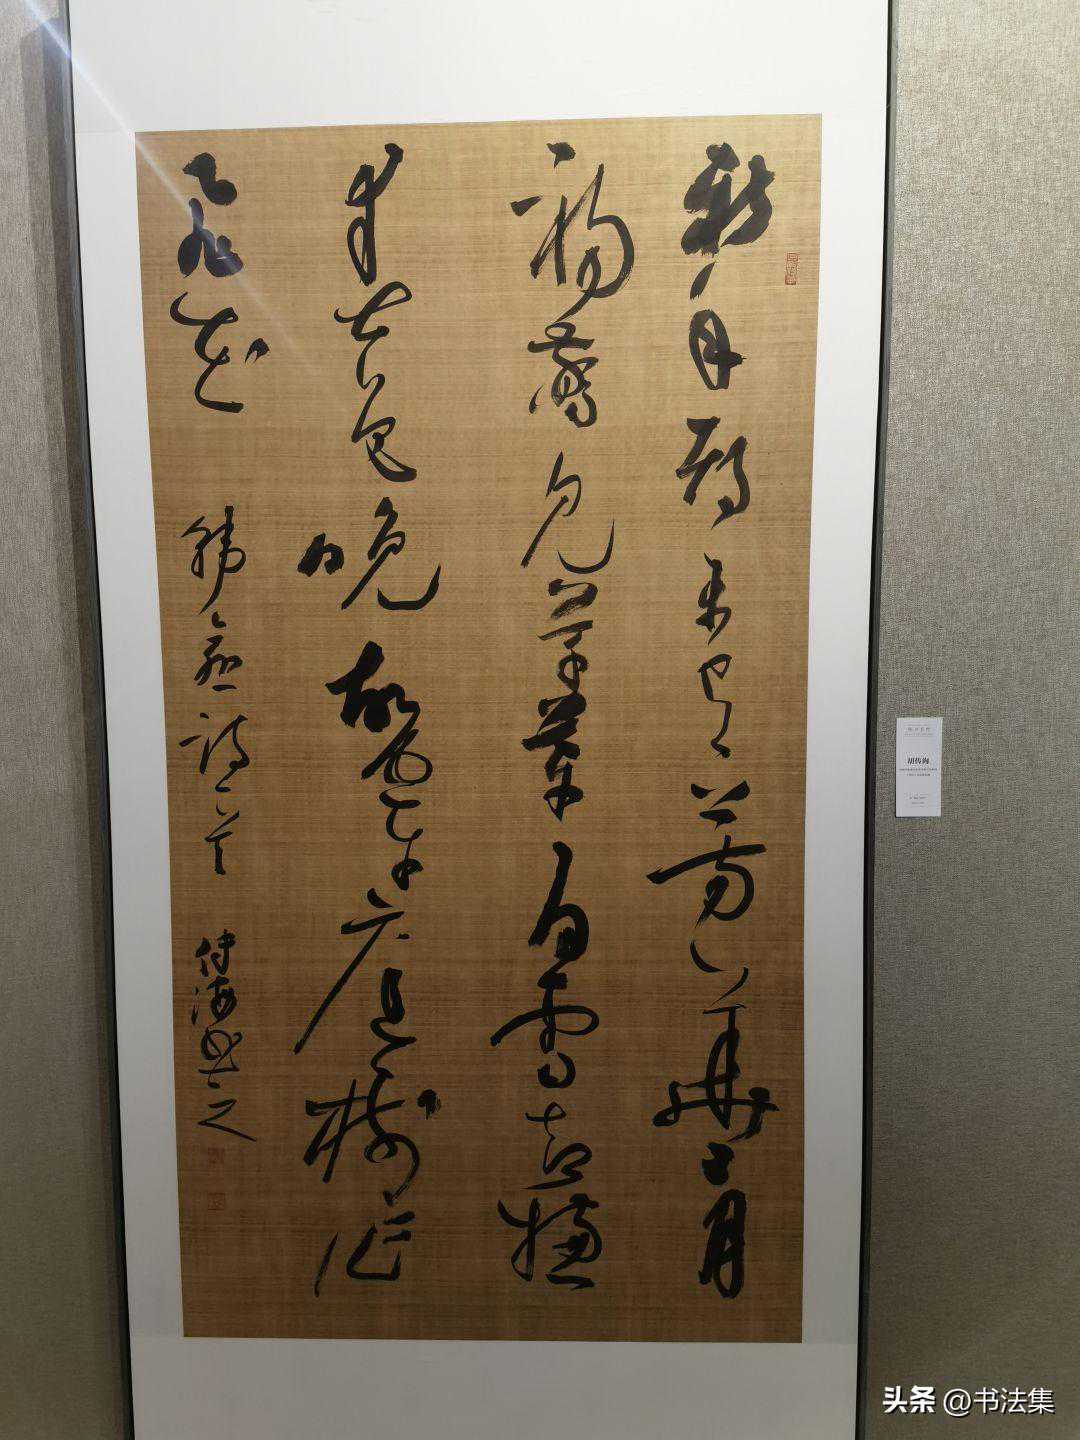 新年都未有芳華二月
初驚見草芽白雪却嫌
春色晚故穿庭樹作
飛花 韓愈詩一首 传海书之
胡传海
头条 @书法集